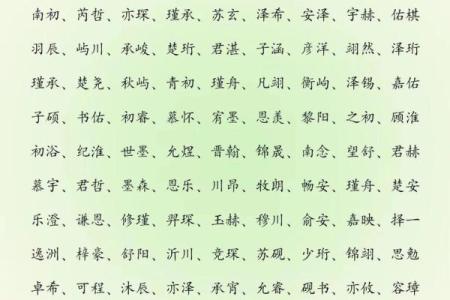 南初、芮哲、亦琛、瑾承、苏玄、泽希、安泽、宇赫、佑棋
羽辰、屿川、承峻、楚珩、君湛、子涵、彦洋、翊然、泽珩
瑾承、楚尧、秋屿、青初、瑾舟、凡翊、衡屿、泽锡、嘉佑
子硕、书佑、初睿、慕怀、宥墨、恩羡、黎阳、之初、顾淮
初浴、纪淮、世墨、允煜、晋翰、锦晟、南念、望舒、君赫
慕宇、君哲、墨森、恩乐、川昂、牧朗、畅安、瑾舟、楚安
乐澄、谦恩、修瑾、羿琛、玉赫、穆川、俞安、嘉映、择一
逸洲、梓豪、舒阳、沂川、竞琛、苏砚、少珩、锦翊、思勉
卓希、可程、沐辰、亦泽、承宵、允睿、砚书、亦攸、容璋